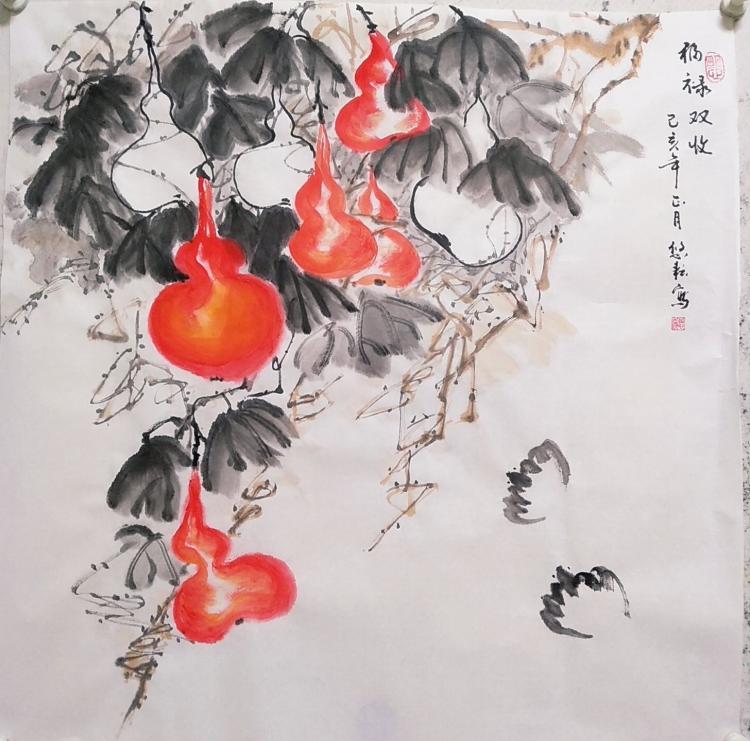 福禄双收
己亥年正月悠耘写